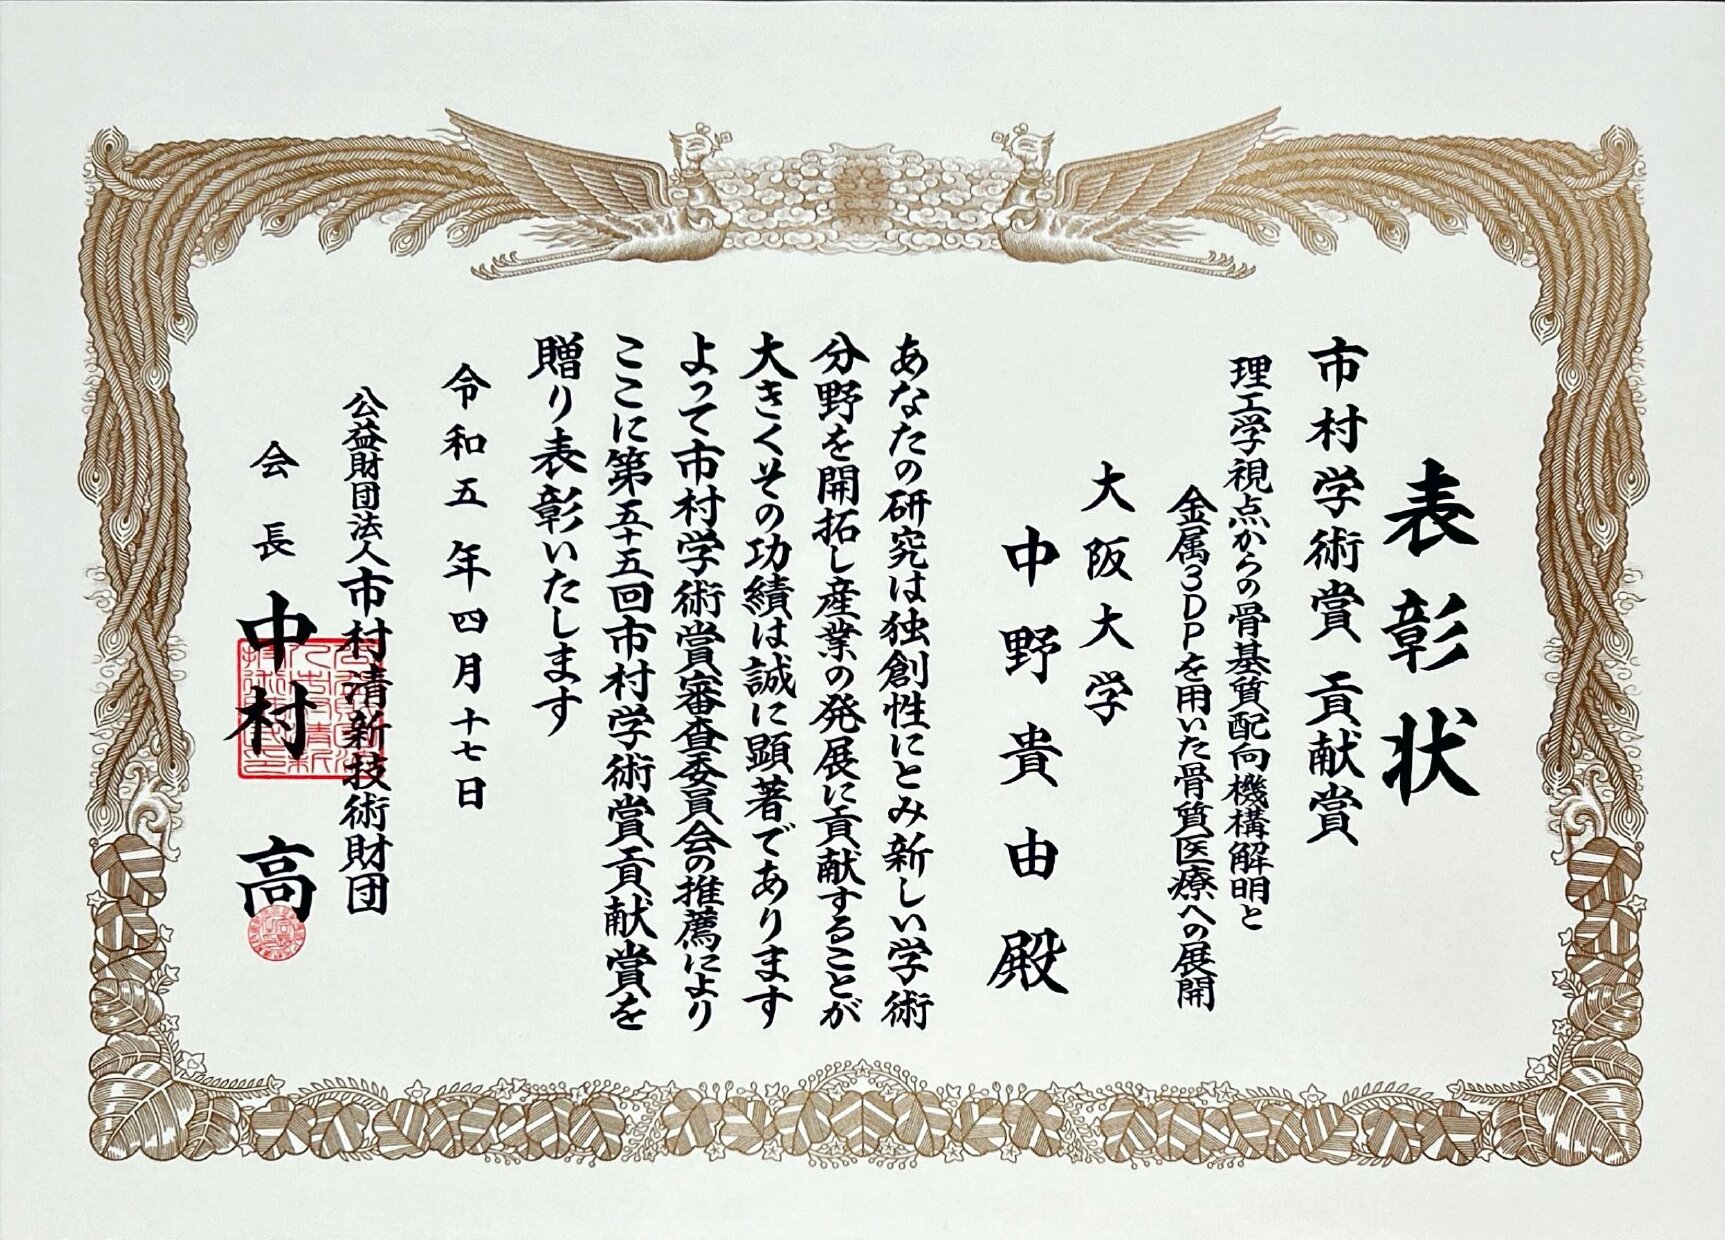 表彰状
市村学術賞 貢献賞
理工学視点からの骨基質配向機構解明と
金属3DPを用いた骨質医療への展開
大阪大学
中野貴由殿
あなたの研究は独創性にとみ新しい学術
分野を開拓し産業の発展に貢献することが
大きくその功績は誠に顕著であります
よって市村学術賞審査委員会の推薦により
ここに第五十五回市村学術賞貢献賞を
贈り表彰いたします
令和五年四月十七日
公益財団法人市村清新技術財団
会長 中村 高